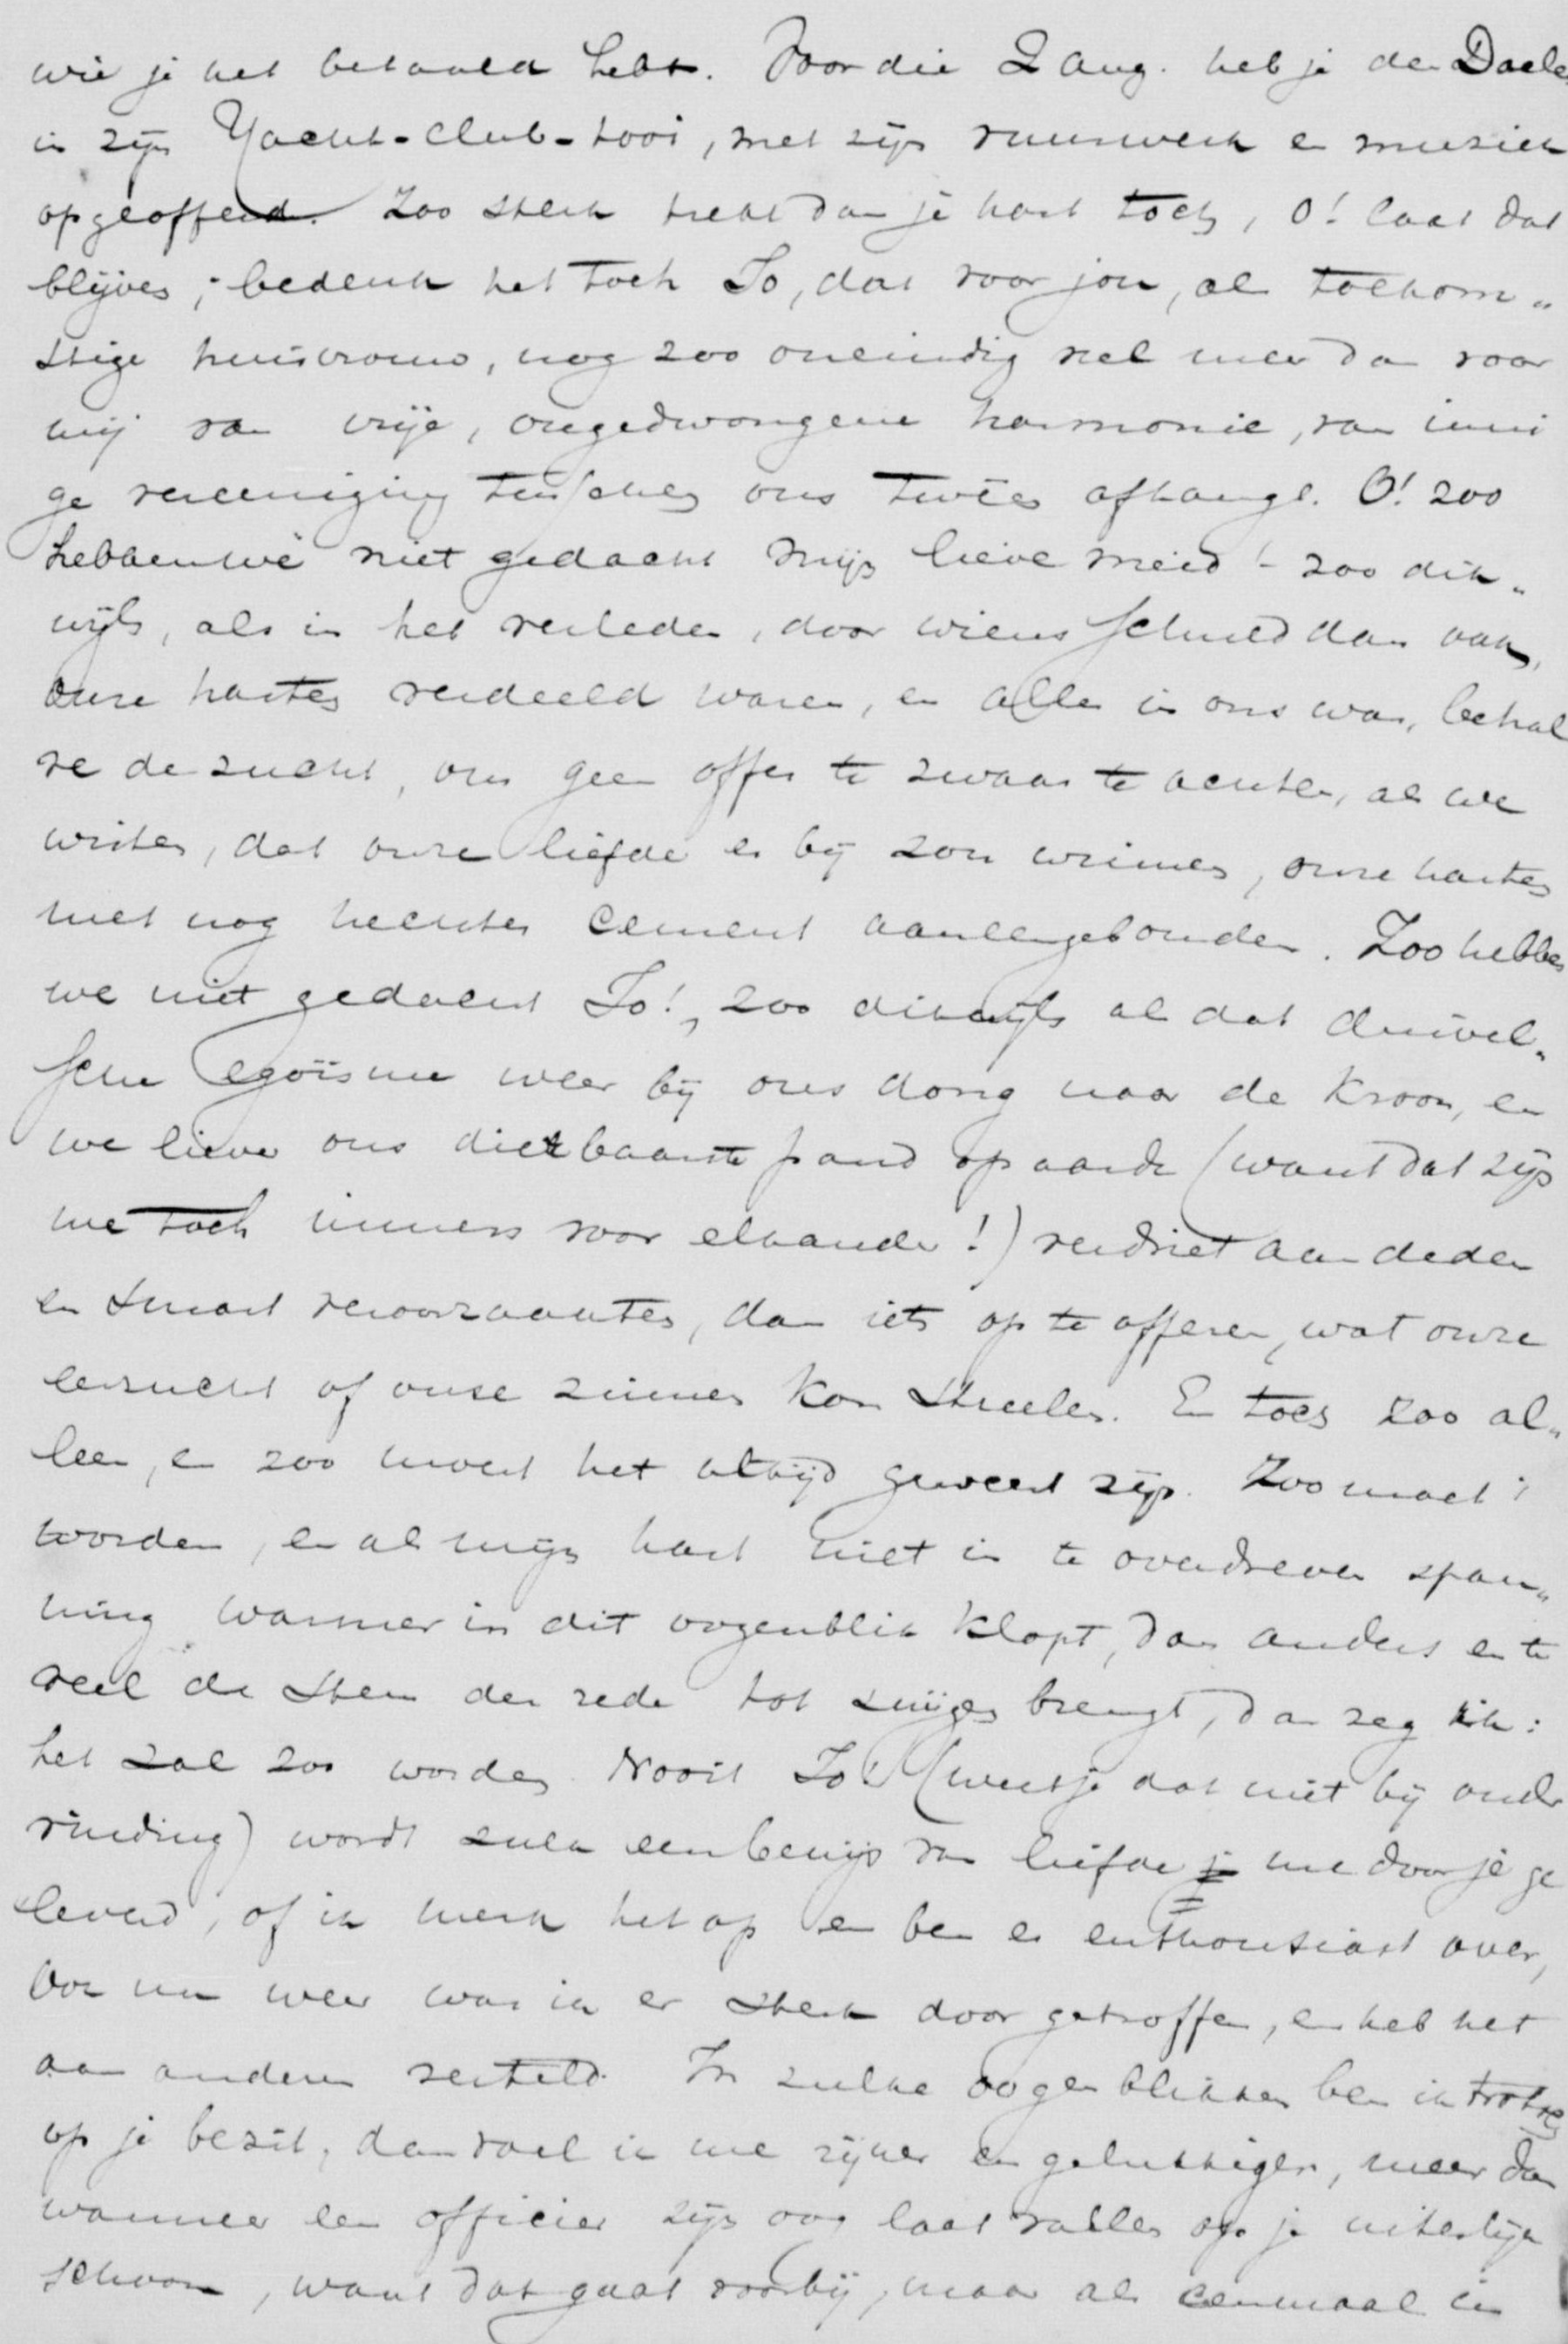 wie je het betaald hebt. Voor die 2 Aug. heb je den Doele
in zijn Yacht-club-tooi, met zijn vuurwerk en muziek
opgeofferd. Zoo sterk trekt dan je hart toch, O! laat dat
blijven; bedenk het toch Jo, dat voor jou, als toekom„
stige huisvrouw, nog zoo oneindig veel meer dan voor
mij van vrije, ongedwongene harmonie, van inni
ge vereeniging tusschen ons tweën afhangt. O! zoo
hebben we niet gedacht mijn lieve meid! zoo dik„
wijls, als in het verleden, door wiens schuld dan ook,
onze harten verdeeld waren, en alles in ons was, behal
ve de zucht, om geen offer te zwaar te achten, als we
wisten, dat onze liefde er bij zou winnen, onze harten
met nog hechter cement aaneengebonden. Zoo hebben
we niet gedacht Jo!, zoo dikwijls als dat duivel„
sche egoïsme weer bij ons dong naar de kroon, en
we liever ons dierbaarste pand op aarde (want dat zijn
we toch immers voor elkander!) verdriet aandeden
en smart veroorzaakten, dan iets op te offeren, wat onze
eerzucht of onze zinnen kon streelen. En toch zoo al„
leen, en zoo moest het altijd geweest zijn. Zoo moet 't
worden, en als mijn hart niet in te overdreven span„
ning warmer in dit oogenblik klopt, dan anders en te
veel de stem der rede tot zwijgen brengt, dan zeg ik:
het zal zoo worden. Nooit Jo! (weet je dat niet bij onder
vinding) wordt zulk een bewijs van liefde me door je ge
leverd, of ik merk het op en ben er enthousiast over,
ook nu weer was ik er sterk door getroffen, en heb het
aan anderen verteld. In zulke oogenblikken ben ik trotsch
op je bezit, dan voel ik me rijker en gelukkiger, meer dan
wanneer een officier zijn oog laat vallen op je uiterlijk
schoon, want dat gaat voorbij, maar als eenmaal in